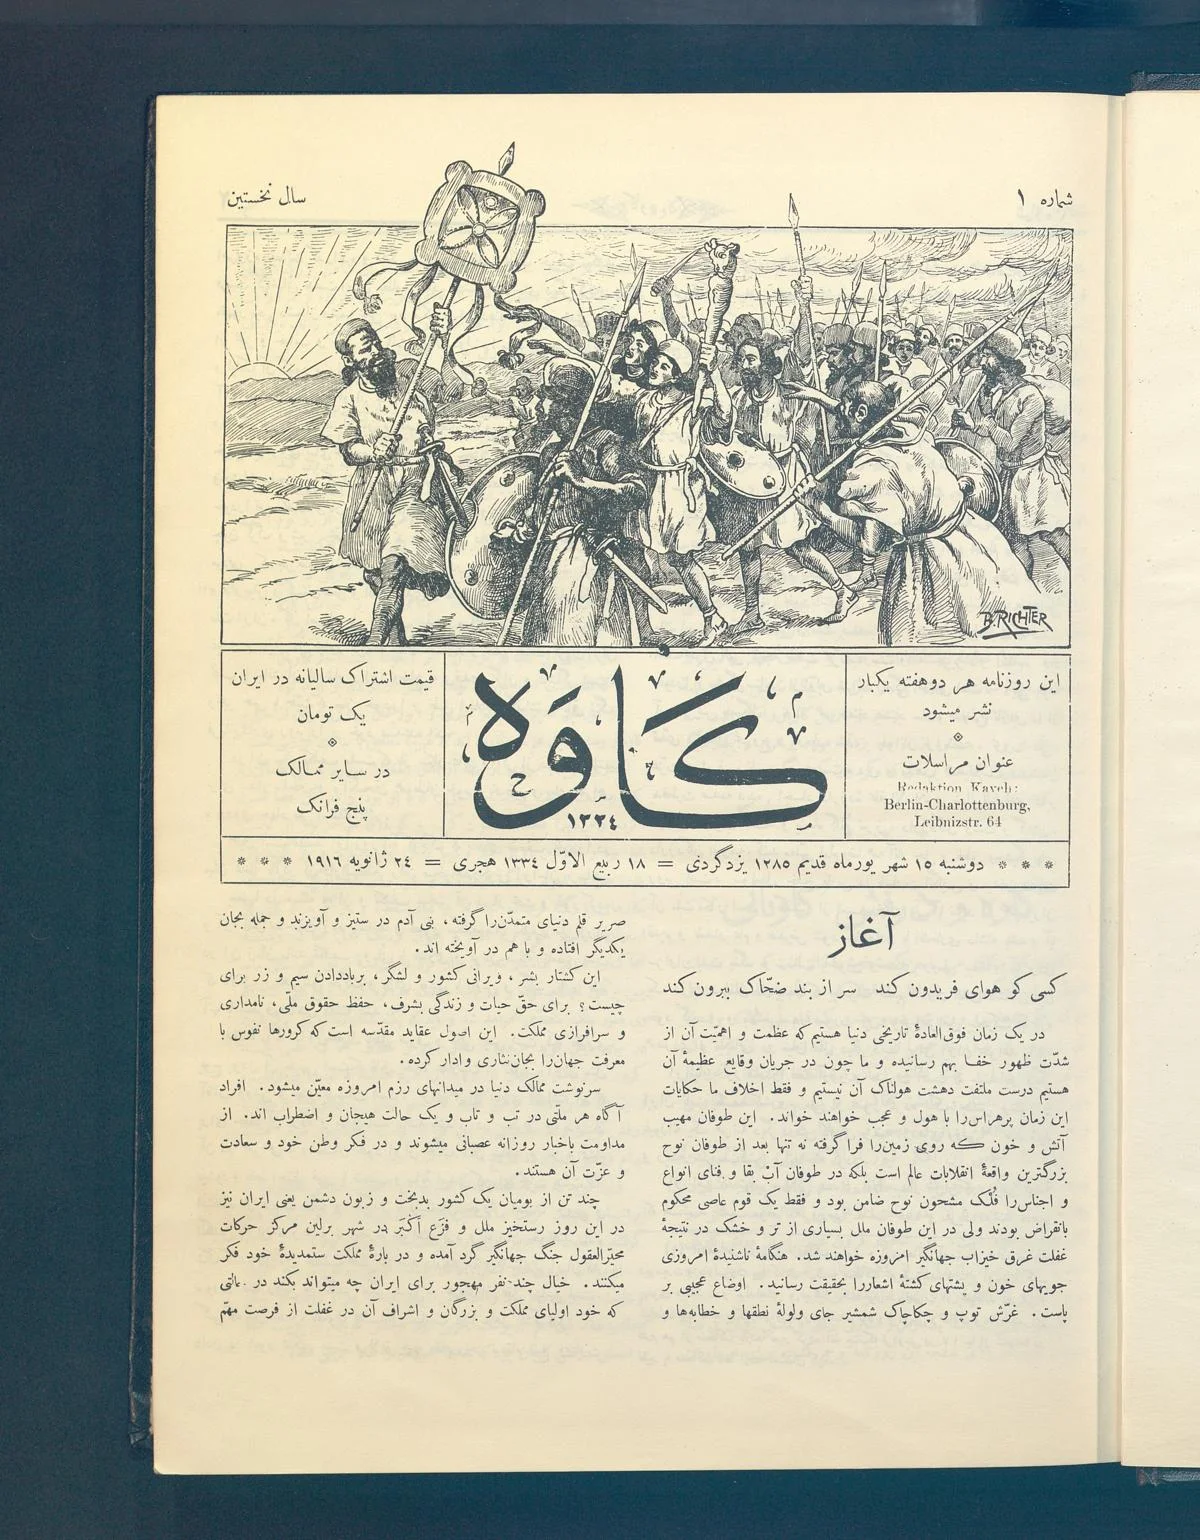 شماره ۱
سال نخستین
B. RICHTER
این روزنامه هر دو هفته یکبار
نشر میشود
عنوان مراسلات
Redaktion Kaveh:
Berlin-Charlottenburg,
Leibnizstr. 64
کاوه
۱۳۳۴
قیمت اشتراک سالیانه در ایران
یک تومان
در سایر ممالک
پنج فرانک
دوشنبه ۱۵ شهریورماه قدیم ۱۲۸۵ یزدگردی = ۱۸ ربیع الاوّل ۱۳۳۴ هجری = ۲۴ ژانویه ۱۹۱۶
آغاز
کسی کو هوای فریدون کند سر از بند ضحّاک بیرون کند
در یک زمان فوق‌العادهٔ تاریخی دنیا هستیم که عظمت و اهمّیت آن از
شدّت ظهور خفا بهم رسانیده و ما چون در جریان وقایع عظیمهٔ آن
هستیم درست ملتفت دهشت هولناک آن نیستیم و فقط اخلاف ما حکایات
این زمان پرهراس‌را با هول و عجب خواهند خواند. این طوفان مهیب
آتش و خون که روی زمین‌را فرا گرفته نه تنها بعد از طوفان نوح
بزرگترین واقعهٔ انقلابات عالم است بلکه در طوفان آبْ بقا و فنای انواع
و اجناس‌را فُلْک مشحون نوح ضامن بود و فقط یک قوم عاصی محکوم
بانقراض بودند ولی در این طوفان ملل بسیاری از تر و خشک در نتیجهٔ
غفلت غرق خیزاب جهانگیر امروزه خواهند شد. هنگامهٔ ناشنیدهٔ امروزی
جویهای خون و پشتهای کشتهٔ اشعاررا بحقیقت رسانید. اوضاع عجیبی بر
پاست. غرّش توپ و چکاچاک شمشیر جای ولولهٔ نطقها و خطابه‌ها و
صریر قلم دنیای متمدّن‌را گرفته، بنی آدم در ستیز و آویزند و جمله بجان
یکدیگر افتاده و با هم در آویخته اند.
این کشتار بشر، ویرانی کشور و لشگر، برباددادن سیم و زر برای
چیست؟ برای حقّ حیات و زندگی بشرف، حفظ حقوق ملّی، نامداری
و سرافرازی مملکت. این اصول عقاید مقدّسه است که کرورها نفوس با
معرفت جهان‌را بجان‌نثاری وادار کرده.
سرنوشت ممالک دنیا در میدانهای رزم امروزه معیّن میشود. افراد
آگاه هر ملّتی در تب و تاب و یک حالت هیجان و اضطراب اند. از
مداومت باخبار روزانه عصبانی میشوند و در فکر وطن خود و سعادت
و عزّت آن هستند.
چند تن از بومیان یک کشور بدبخت و زبون دشمن یعنی ایران نیز
در این روز رستخیز ملل و فَزَع اَکْبَر در شهر برلین مرکز حرکات
محیّرالعقول جنگ جهانگیر گرد آمده و در بارهٔ مملکت ستمدیدهٔ خود فکر
میکنند. خیال چند نفر مهجور برای ایران چه میتواند بکند در حالتی
که خود اولیای مملکت و بزرگان و اشراف آن در غفلت از فرصت مهمّ